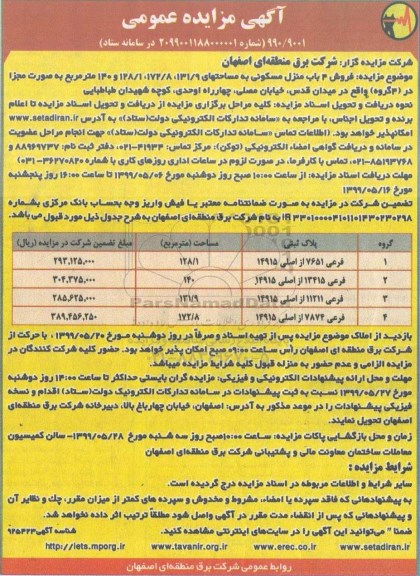 آگهی مزایده عمومی
۹۹۰/۹۰۰۱ (شماره ۲۰۹۹۰۰۱۱۸۸۰۰۰۰۰۱ در سامانه ستاد)
شرکت مزایده گزار: شرکت برق منطقه‌ای اصفهان
موضوع مزایده: فروش ۴ باب منزل مسکونی به مساحتهای ۱۳۱/۹، ۱۷۲/۸، ۱۲۸/۱ و ۱۴۰ مترمربع به صورت مجزا
در (۴گروه) واقع در میدان قدس، خیابان مصلی، چهارراه اوحدی، کوچه شهیدان طباطبایی
نحوه دریافت و تحویل اسناد مزایده: کلیه مراحل برگزاری مزایده از دریافت و تحویل اسناد مزایده تا اعلام
برنده و تحویل اجناس، با مراجعه به «سامانه تدارکات الکترونیکی دولت(ستاد)» به آدرس www.setadiran.ir
امکانپذیر خواهد بود. (اطلاعات تماس «سامانه تدارکات الکترونیکی دولت(ستاد)» جهت انجام مراحل عضویت
در سامانه و دریافت گواهی امضاء الکترونیکی (توکن): مرکز تماس: ۴۱۹۳۴-۰۲۱، دفتر ثبت نام: ۸۸۹۶۹۷۳۷ و
۸۵۱۹۳۷۶۸-۰۲۱، تماس با کارفرما، در صورت لزوم در ساعات اداری روزهای کاری با شماره ۳۶۲۷۰۸۲۰-۰۳۱)
مهلت دریافت اسناد مزایده: از ساعت ۱۰:۰۰ صبح روز دوشنبه مورخ ۱۳۹۹/۰۵/۰۶ تا ساعت ۱۶:۰۰ روز پنجشنبه
مورخ ۱۳۹۹/۰۵/۱۶
تضمین شرکت در مزایده به صورت ضمانتنامه معتبر یا فیش واریز وجه بحساب بانک مرکزی بشماره
به نام شرکت برق منطقه‌ای اصفهان به شرح جدول ذیل مورد قبول می باشد.
گروه پلاک ثبتی مساحت (مترمربع) مبلغ تضمین شرکت در مزایده (ریال)
۱ ۷۶۵۱ فرعی از اصلی ۱۴۹۱۵ ۱۲۸/۱ ۲۹۳,۱۲۵,۰۰۰
۲ ۱۳۴۱۵ فرعی از اصلی ۱۴۹۱۵ ۱۴۰ ۳۰۴,۳۷۵,۰۰۰
۳ ۱۱۲۱۱ فرعی از اصلی ۱۴۹۱۵ ۱۳۱/۹ ۲۸۵,۶۲۵,۰۰۰
۴ ۷۸۷۴ فرعی از اصلی ۱۴۹۱۵ ۱۷۲/۸ ۳۸۹,۴۵۶,۲۵۰
بازدید از املاک موضوع مزایده پس از تهیه اسناد و صرفاً در روز دوشنبه مورخ ۱۳۹۹/۰۵/۲۰، با حرکت از
شرکت برق منطقه ای اصفهان رأس ساعت ۰۹:۰۰ صبح امکان پذیر خواهد بود. حضور کلیه شرکت کنندگان در
مزایده الزامی و عدم حضور به منزله قبول کلیه شرایط مزایده میباشد.
مهلت و محل ارائه پیشنهادات الکترونیکی و فیزیکی: مزایده گران بایستی حداکثر تا ساعت ۱۴:۰۰ روز دوشنبه
مورخ ۱۳۹۹/۰۵/۲۷ نسبت به ثبت پیشنهادات در سامانه تدارکات الکترونیک دولت(ستاد) اقدام و نسخه
فیزیکی پیشنهادات را در موعد مذکور به آدرس: اصفهان، خیابان چهارباغ بالا، دبیرخانه شرکت برق منطقه‌ای
اصفهان تحویل نمایند.
زمان و محل بازگشایی پاکات مزایده: ساعت ۱۰:۰۰صبح روز سه شنبه مورخ ۱۳۹۹/۰۵/۲۸- سالن کمیسیون
معاملات ساختمان معاونت مالی و پشتیبانی شرکت برق منطقه‌ای اصفهان
شرایط مزایده :
سایر شرایط و اطلاعات مربوطه در اسناد مزایده درج گردیده است.
به پیشنهادهائی که فاقد سپرده یا امضاء، مشروط و مخدوش و سپرده های کمتر از میزان مقرر، چک و نظایر آن
و پیشنهادهائی که پس از انقضاء مدت مقرر در آگهی واصل شود مطلقاً ترتیب اثر داده نخواهد شد.
ضمنا " می‌توانید این آگهی را در سایت‌های اینترنتی مشاهده کنید. شناسه آگهی ۹۲۵۴۲۳
http://iets.mporg.ir www.tavanir.org.ir www.erec.co.ir www.setadiran.ir
روابط عمومی شرکت برق منطقه‌ای اصفهان